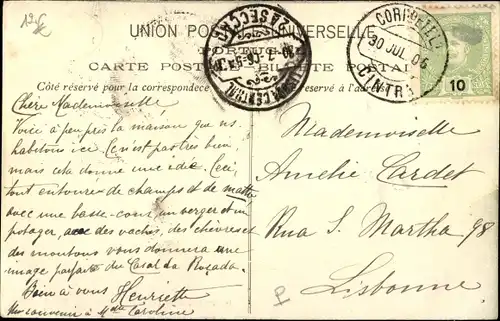 12.5
UNION POSTALE UNIVERSELLE
PORTUGAL
CARTE POSTALE BILHETE POSTAL
Côté réservé pour la correspondece
réservé à l'adresse
CORREIO E TEL
30 JUL. 06
CINTRA
2A SECÇÃO
CENTRAL
10
Chère Mademoiselle
Voici à peu près la maison que ns.
habitons ici. Ce n'est pas très bien
mais cela donne une idée. Ceci
tout entouré de champs et de matto
avec une basse-cour, un verger et un
potager, avec des vaches, des chèvres et
des moutons vous donnera une
image parfaite du Casal da Rosada.
Bien à vous Henriette
Mon souvenir à Mdlle Caroline
Mademoiselle
Amélie Cardet
Rua S. Martha 98
Lisbonne